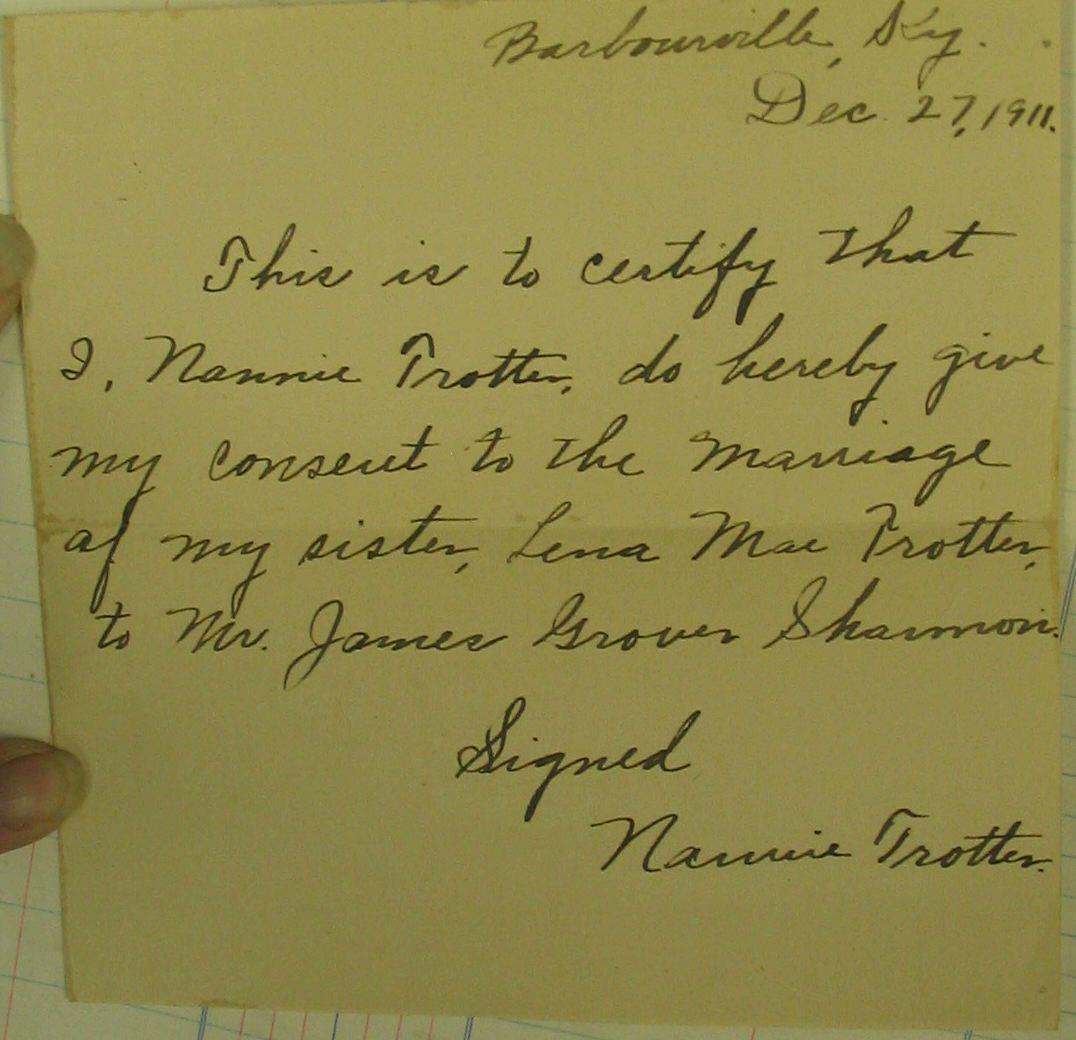 Barbourville, Ky.
Dec. 27, 1911.
This is to certify that
I, Nannie Trotter, do hereby give
my consent to the marriage
of my sister, Lena Mae Trotter,
to Mr. James Grover Shannon.
Signed
Nannie Trotter.